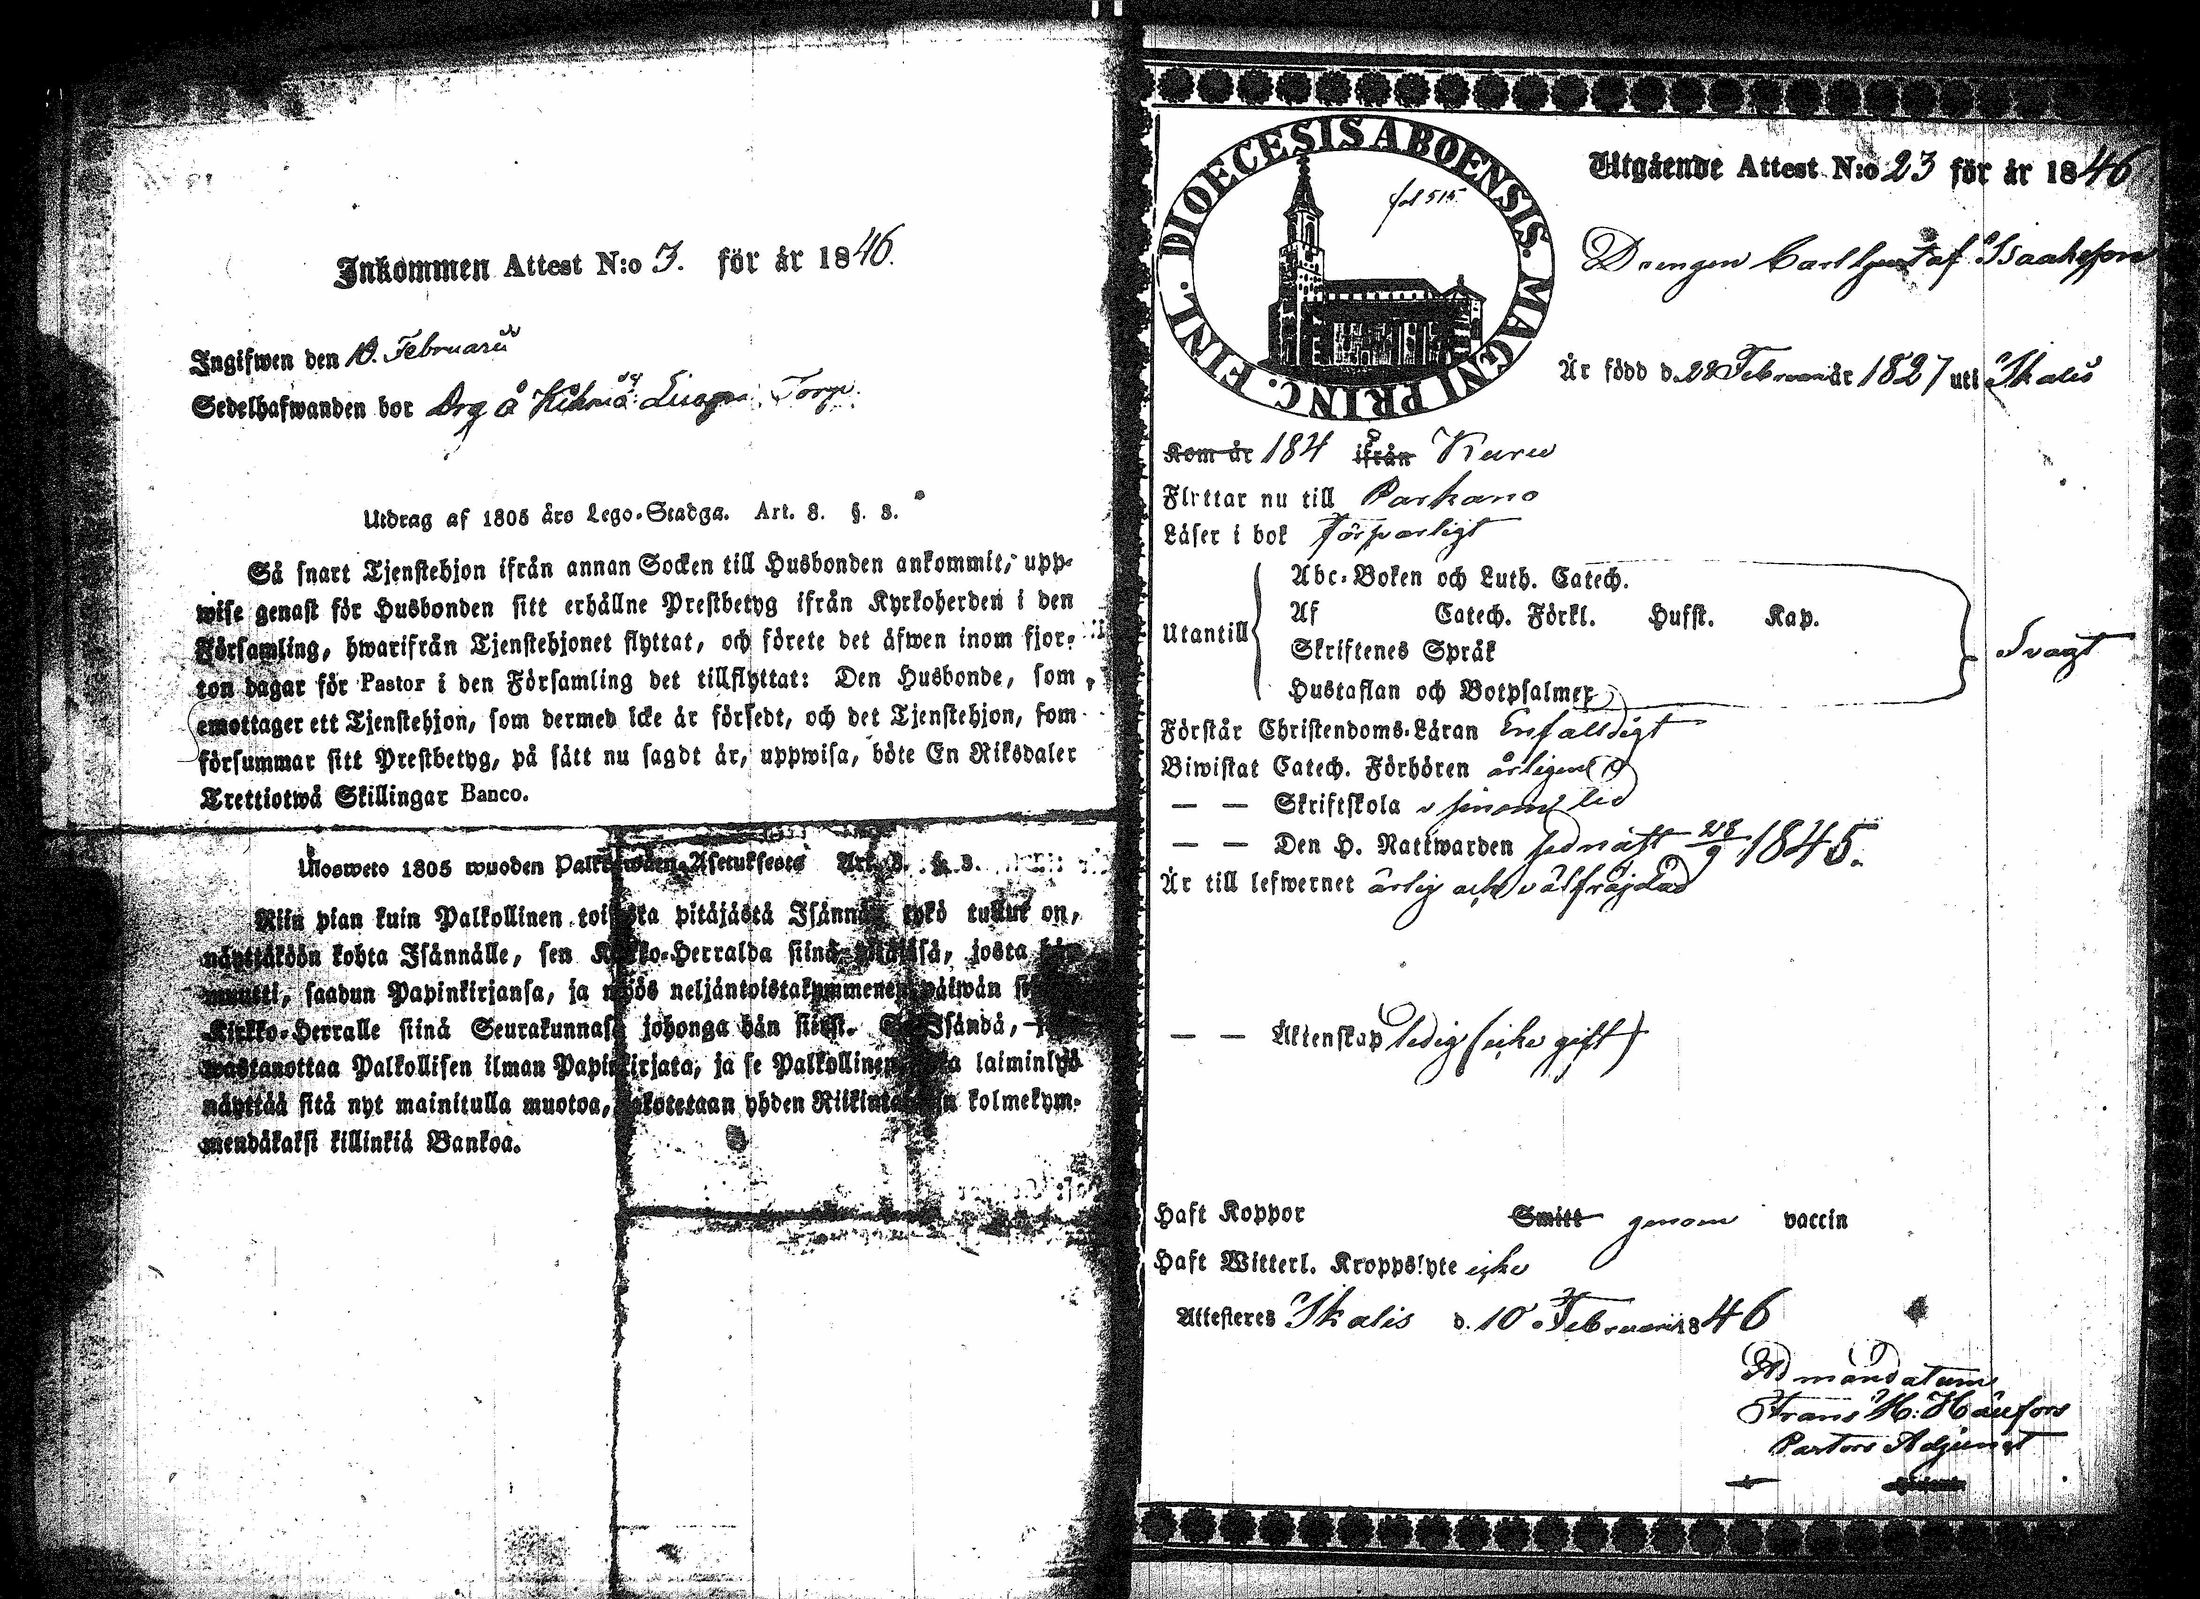 Inkommen Attest N:o 3. för år 1846.
Ingifwen den 10. Februarii
Sedelhafwanden bor Drg å
Torp.
Utdrag af 1805 års Lego-Stadga. Art. 8. §. 3.
Så snart Tjenstehjon ifrån annan Socken till Husbonden ankommit, upp-
wise genast för Husbonden sitt erhållne Prestbetyg ifrån Kyrkoherden i den
Församling, hwarifrån Tjenstehjonet flyttat, och förete det äfwen inom fjor-
ton dagar för Pastor i den Församling det tillflyttat: Den Husbonde, som
emottager ett Tjenstehjon, som dermed icke är försedt, och det Tjenstehjon, som
försummar sitt Prestbetyg, på sätt nu sagdt är, uppwisa, böte En Riksdaler
Trettiotwå Skillingar Banco.
Ulosweto 1805 wuoden Palkowäen-Asetuksesta Art. 8. §. 3.
Niin pian kuin Palkollinen toisesta pitäjästä Isännän tykö tullut on,
näyttäköön kohta Isännälle, sen Kirkko-Herralda siinä pitäjäsä, josta hän
muutti, saadun Papinkirjansa, ja myös neljäntoistakymmenen päiwän
Kirkko-Herralle siinä Seurakunnasa johonga hän siirsi. Se Isändä, joka
wastanottaa Palkollisen ilman Papinkirjata, ja se Palkollinen, joka laiminlyö
näyttää sitä nyt mainitulla muotoa, sakotetaan yhden Riikintalarin kolmekym-
mendäkaksi killinkiä Bankoa.
DIOECESIS ABOENSIS. MAGNI PRINC. FINL.
fol 515
Utgående Attest N:o 23 för år 1846
Drengen Carl Gustaf Isaaksson
Är född d. 28 Februarii år 1827 uti Ikalis
Kom år 184 ifrån Kuru
Flyttar nu till Parkano
Läser i bok försvarligt
Utantill
Abc-Boken och Luth. Catech.
Af Catech. Förkl. Husst. Kap.
Skriftenes Språk
Hustaflan och Botpsalmer
Svagt
Förstår Christendoms-Läran Enfalldigt
Biwistat Catech. Förhören årligen
— — Skriftskola i sinom tid
— — Den H. Nattwarden sednast 28/9 1845.
Är till lefwernet ärlig och välfräjdad
— — Äktenskap ledig (icke gift)
Haft Koppor Smitt genom vaccin
Haft Witterl. Kroppslyte icke
Attesteres Ikalis d. 10 Februarii 1846
Ad mandatum
Frans H:
Pastors Adjunct